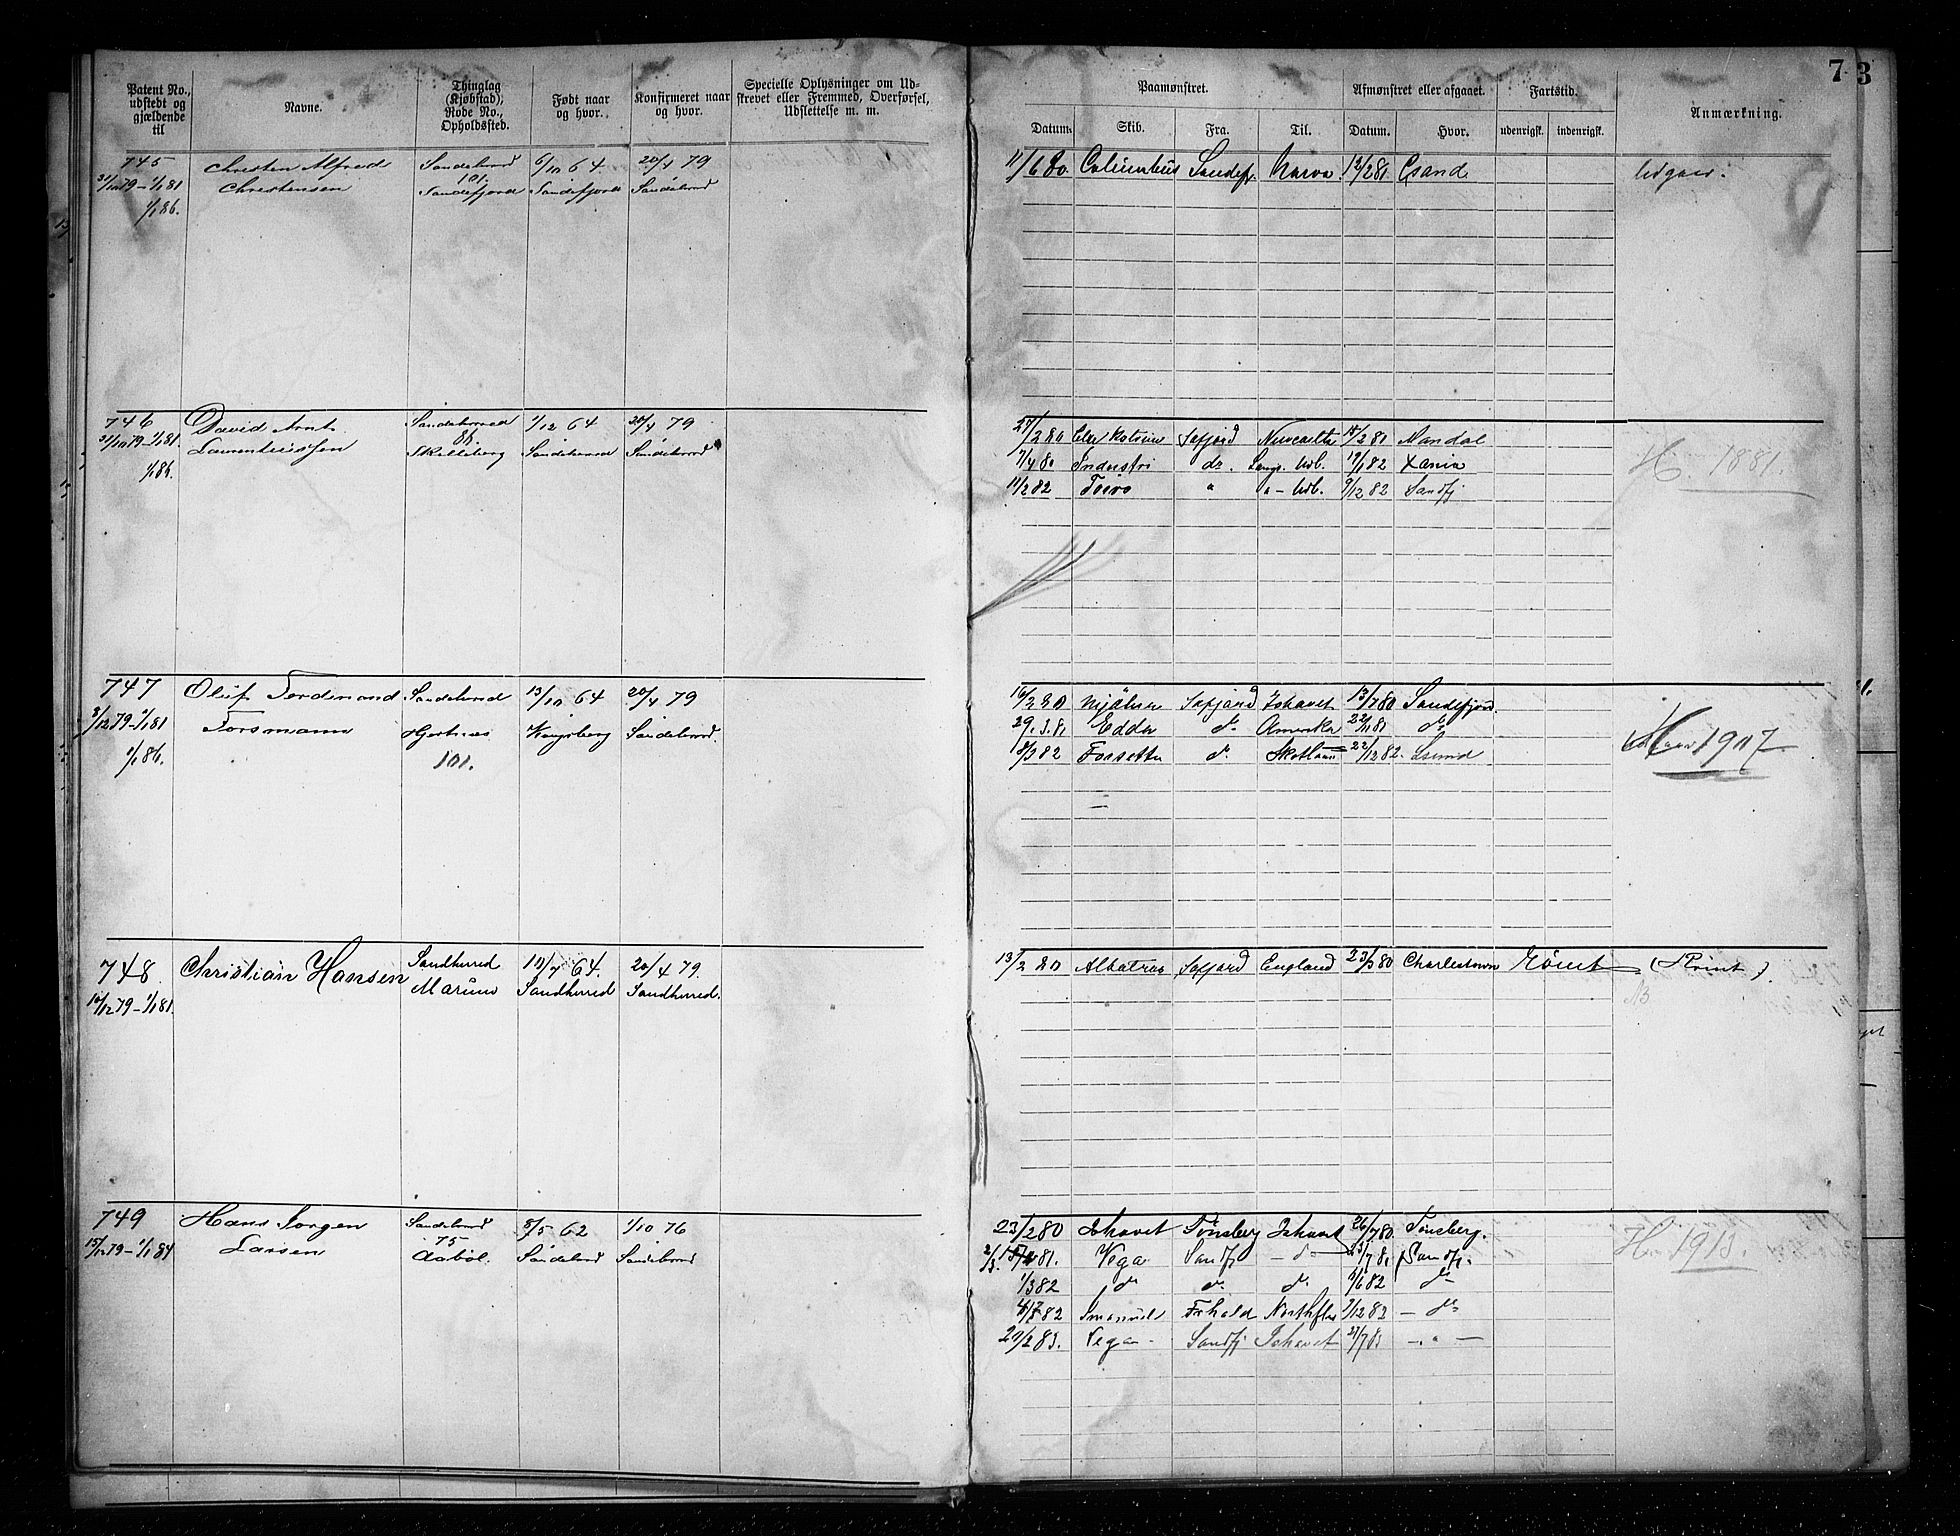 Patent No., udstedt og gjældende til
Navne.
Thinglag (Kjøbstad), Rode No., Opholdssted.
Født naar og hvor.
Konfirmeret naar og hvor.
Specielle Oplysninger om Udskrevet eller Fremmed, Overførsel, Udslettelse m. m.
Paamønstret.
Afmønstret eller afgaaet.
Fartstid.
Anmærkning.
73
Datum. Skib. Fra. Til. Datum. Hvor. udenrigsk. indenrigsk.
745 Christen Alfred Sandeherred 6/10 64 20/4 79
31/10 79 – 1/1 81 Christensen 101. Sandefjord Sandefjord Sandeherred
1/1 86.
11/6 80 Columbus Sandefj. Narva 1881 Csand
Udgaar.
746 David Arnt Sandeherred 1/12 64 20/4 79
31/10 79 – 1/1 81. Laurentiussen Skelleberg Sandeherred Sandeherred
27/2 80 Sefjord Newcastle 2 81 Mandal
7/4 80 Industri do. Udb. 19/1 82 Xania
11/2 82 " " – Udb. 9/12 82 Sandfj
H. 1881.
747 Oluf Ferdinand Sandeherred 13/10 64 20/4 79
3/12 79 – 1/1 81 Forsmann Hjertnes Kongsberg Sandeherred.
1/1 86. 101.
16/2 80 Njålen Sefjord Ishavet 13/7 80 Sandefjord.
29.3.81 Edda do Amerika 81 do
3/3 82 Forsette do. Skotland 22/12 82.
1907
748 Christian Hansen Sandherred 10/7 64. 20/4 79.
16/12 79 – 1/1 81. Marum Sandherred Sandherred.
13/2 80 Albatros Sefjord England 23/5 80 Charlestown Rømt (Rømt.)
749 Hans Jørgen Sandeherred 8/5 62 1/10 76
15/12 79 – 1/1 84 Larsen 75 Aabøl. Sandeherred Sandeherred
23/2 80 Ishavet Tønsberg Ishavet 26/7 80. Tønsberg.
81. Vega Sandfj – do 7 81 Sandfj.
1/3 82 do do. do. 6/6 82 do
82 Frhald 12 82 – do
20/2 83. Vega – Sandfj Ishavet 27/7 83 – " –
H 1913